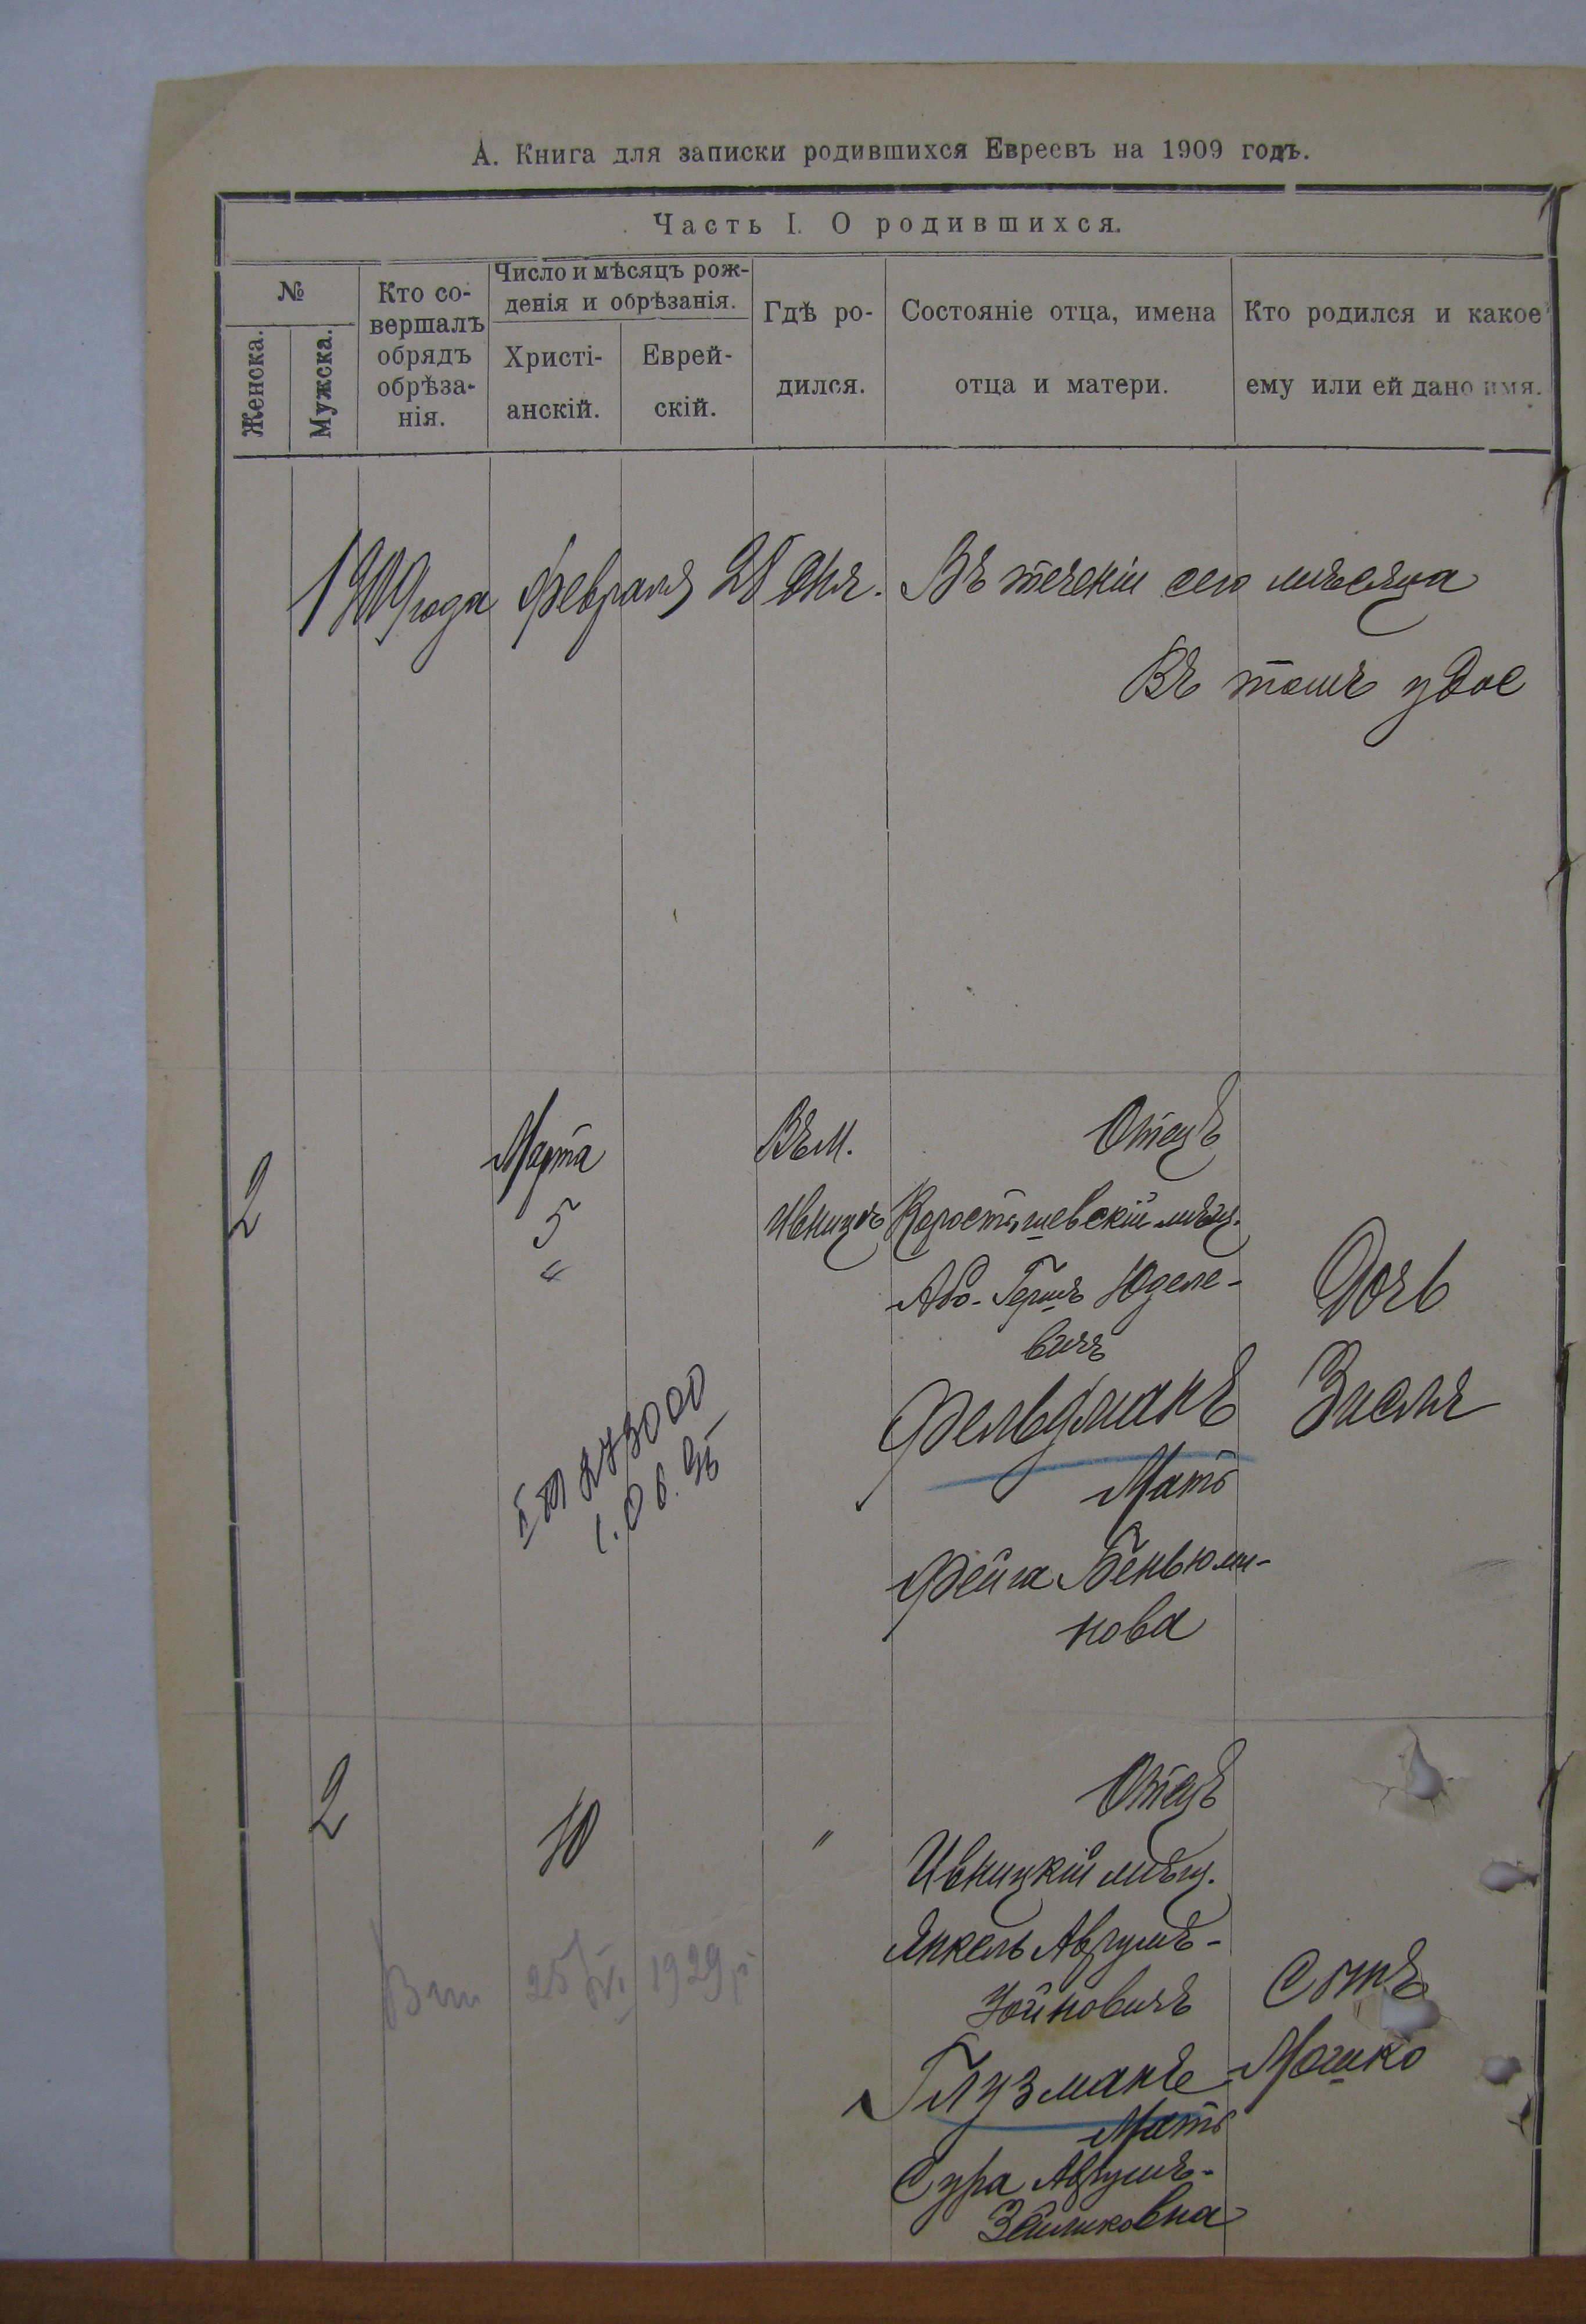 А. Книга для записки родившихся Евреевъ на 1909 годъ.
Часть I. О родившихся.
№
Женска.
Мужска.
Кто со-
вершалъ
обрядъ
обрѣза-
нія.
Число и мѣсяцъ рож-
денія и обрѣзанія.
Христі-
анскій.
Еврей-
скій.
Гдѣ ро-
дился.
Состояніе отца, имена
отца и матери.
Кто родился и какое
ему или ей дано имя.
1909 года Февраля 28 дня. Въ теченіи сего мѣсяца
Въ томъ удос
2
Марта
5
"
Въ м.
Ивницѣ
Отецъ
Коростышевскій мѣщ.
Або-Гершъ Юделе-
вичъ
Фельдманъ
Мать
Фейга Беньюми-
нова
Дочь
Зисля
1.06.95
2
10
"
Отецъ
Ивницкій мѣщ.
Янкель Аврумъ-
Зойновичъ
Глузманъ
Мать
Сура Аврумъ-
Зейликовна
Сынъ
Мошко
25 VI 1929 г